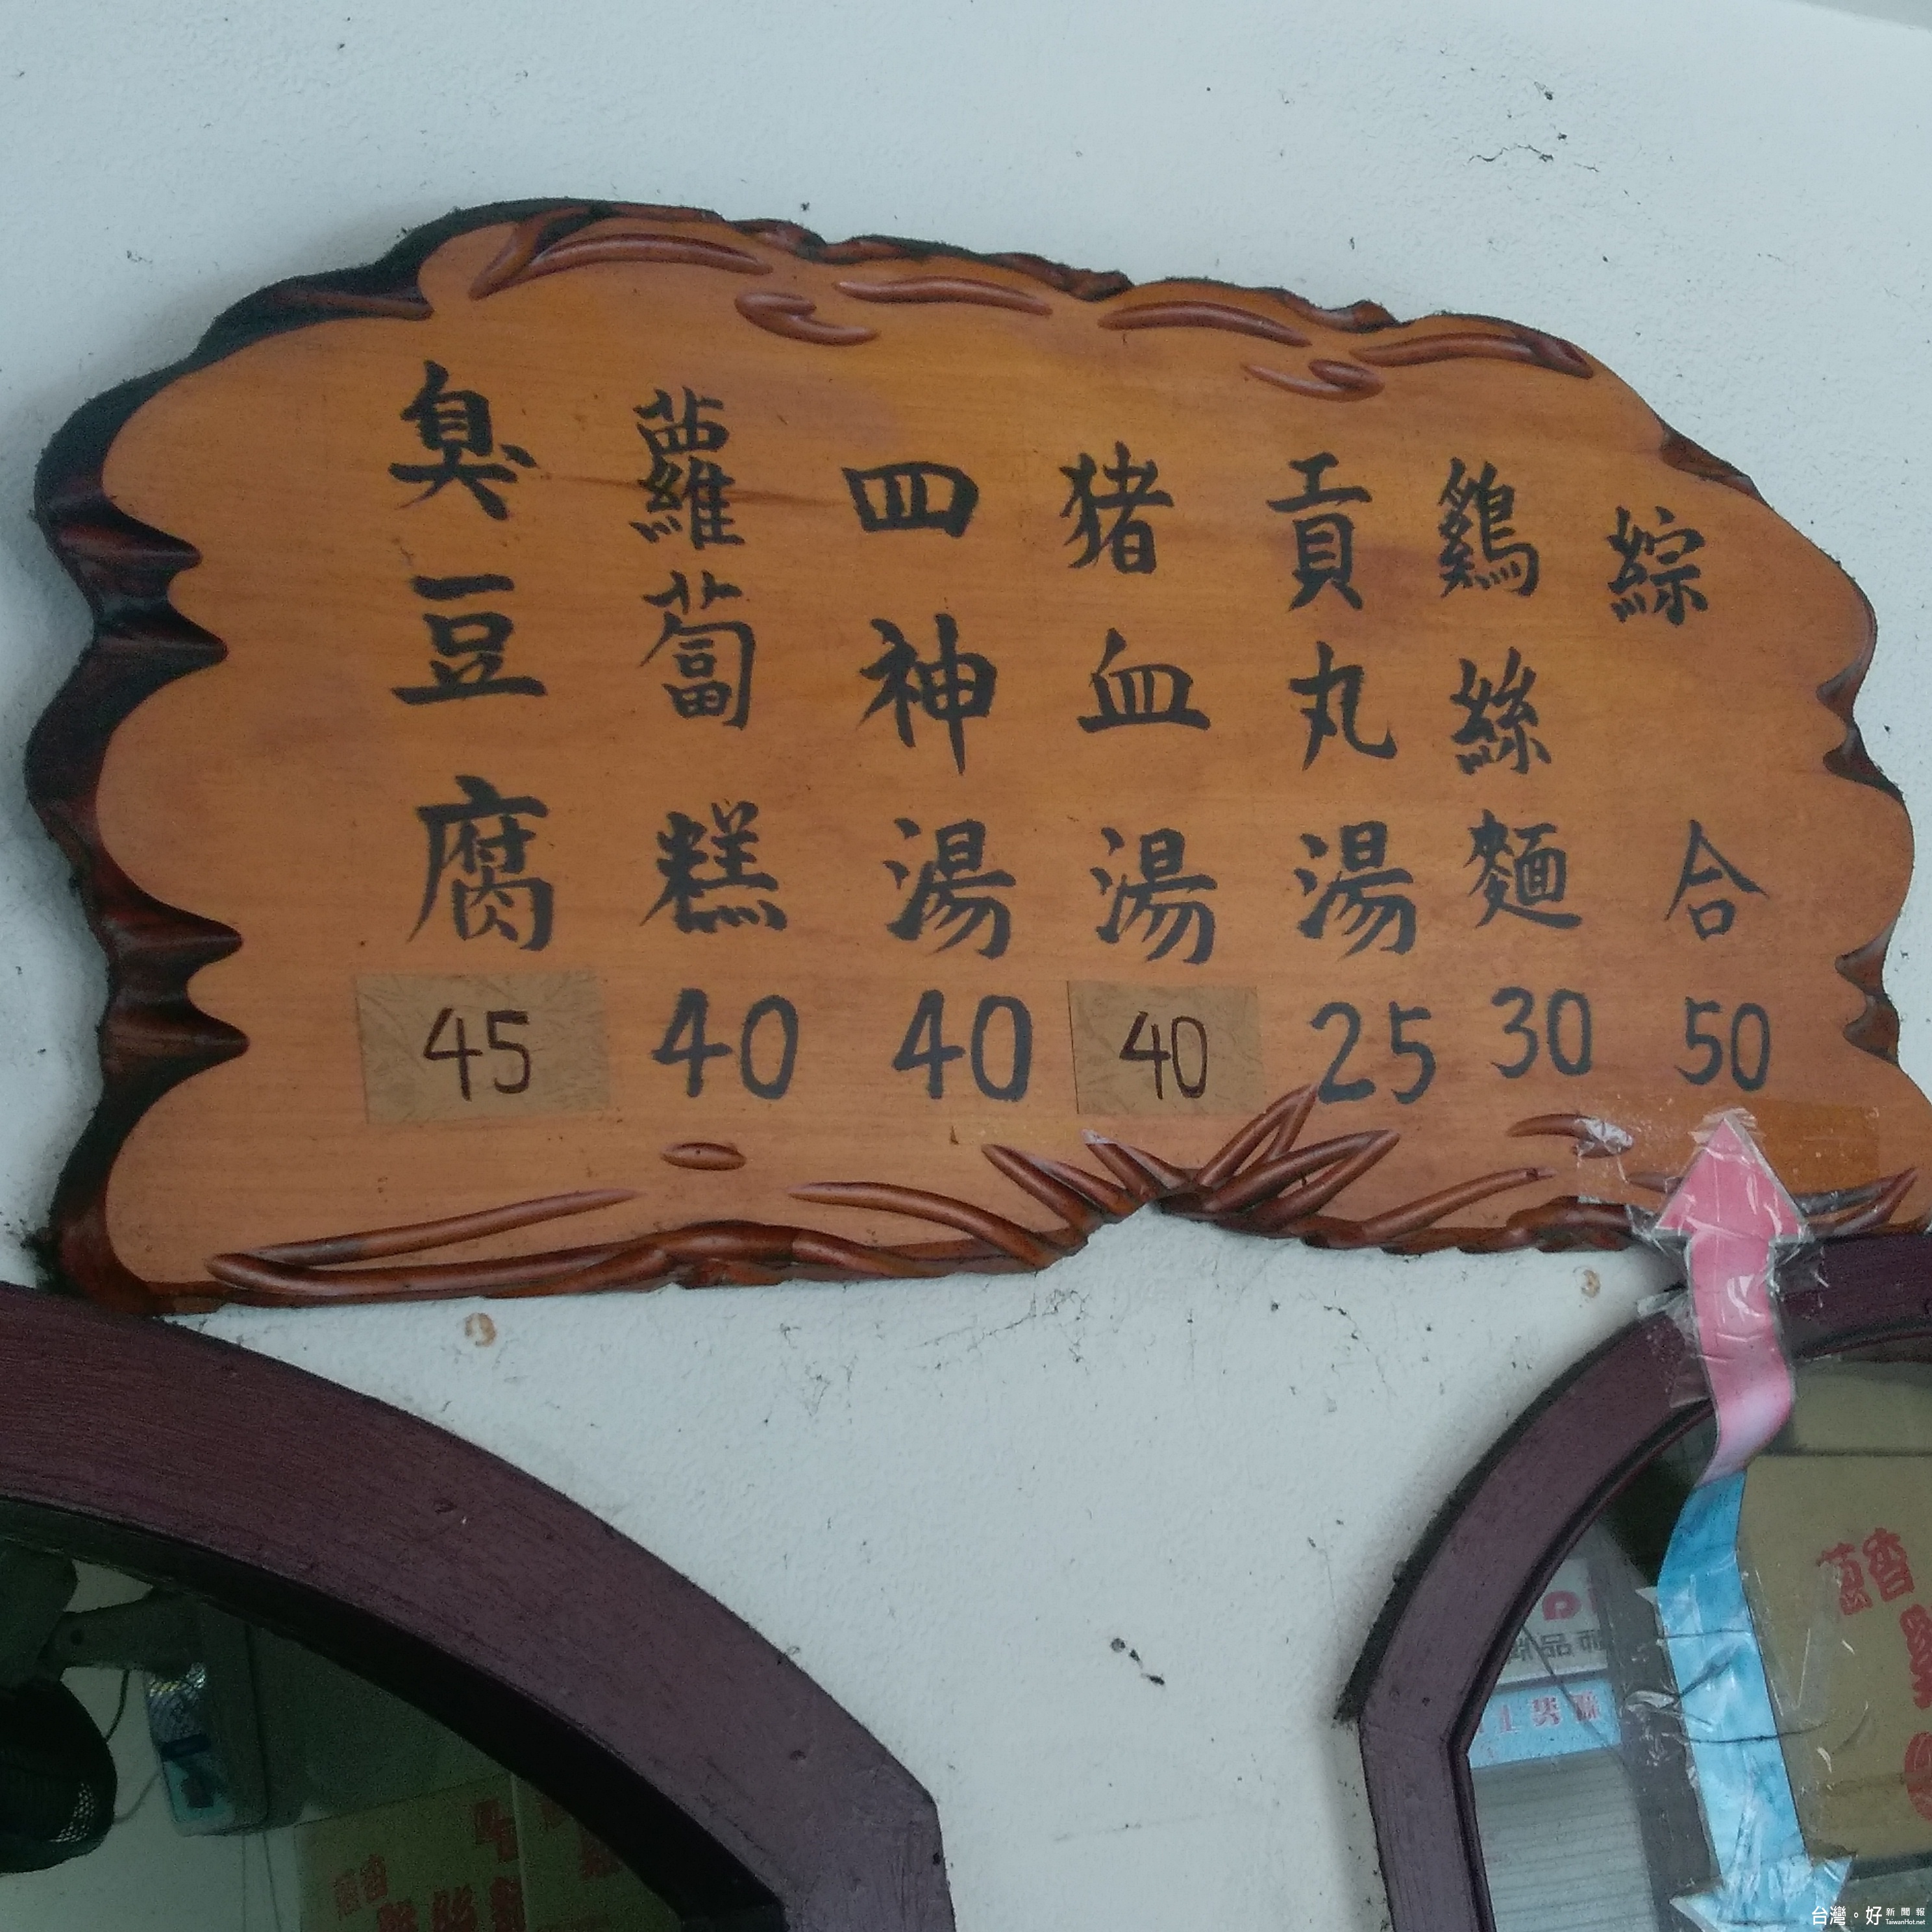 臭豆腐 45
蘿蔔糕 40
四神湯 40
猪血湯 40
貢丸湯 25
鷄絲麵 30
綜合 50
蔥香
蔥香
台灣。好 新聞報
TaiwanHot.net